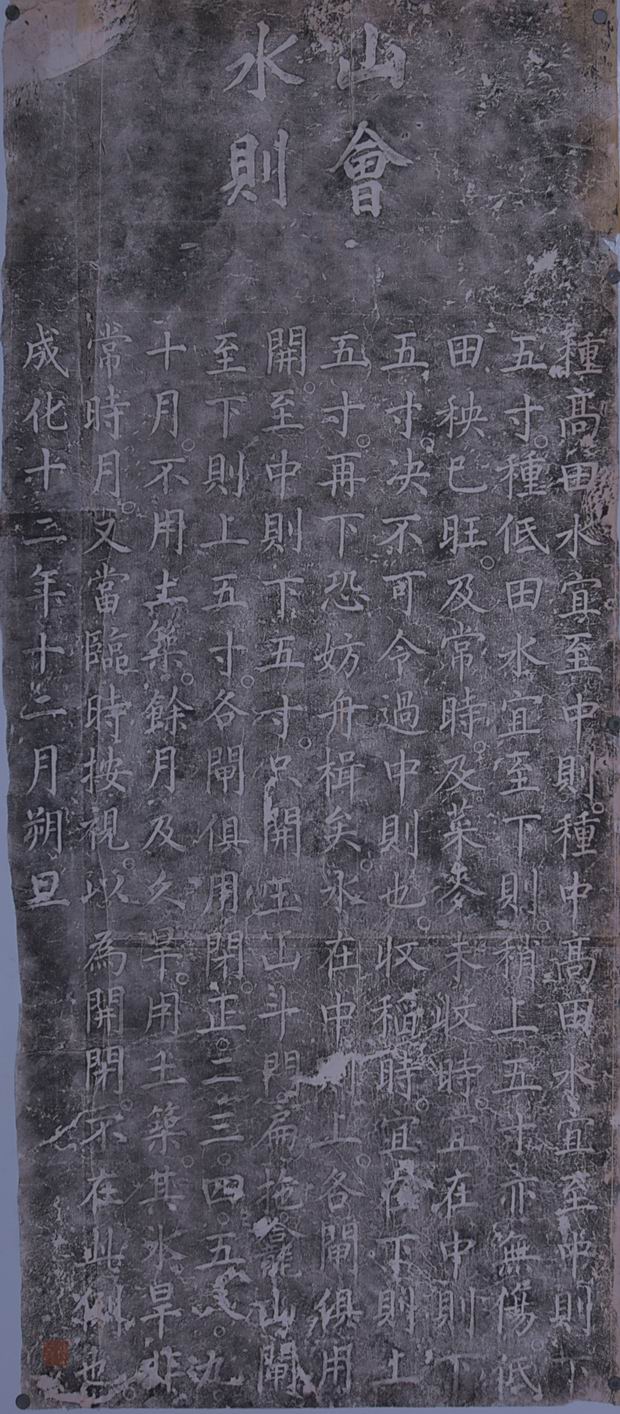 山會
水則
種髙田水宜至中則種中髙田水宜至中則下
五寸種低田水宜至下則稍上五寸亦無傷低
田秧已旺及常時及菜麥未收時宜在中則下
五寸决不可令過中則也收稻時宜在下則上
五寸再下恐妨舟楫矣水在中則上各閘俱用
開至中則下五寸只開玉山斗門扁拖龕山閘
至下則上五寸各閘俱用閉正二三四五八九
十月不用土築餘月及久旱用土築其水旱非
常時月又當臨時按視以為開閉不在此例也
成化十二年十二月朔旦